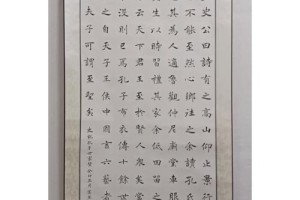 史公曰詩有之高山仰止景行
不能至然心鄉往之余讀孔氏
其為人適魯觀仲尼廟堂車服
生以時習禮其家余低回留之
云天下君王至於賢人衆矣當
沒則已焉孔子布衣傳十餘世
自天子王侯中國言六藝者
夫子可謂至聖矣